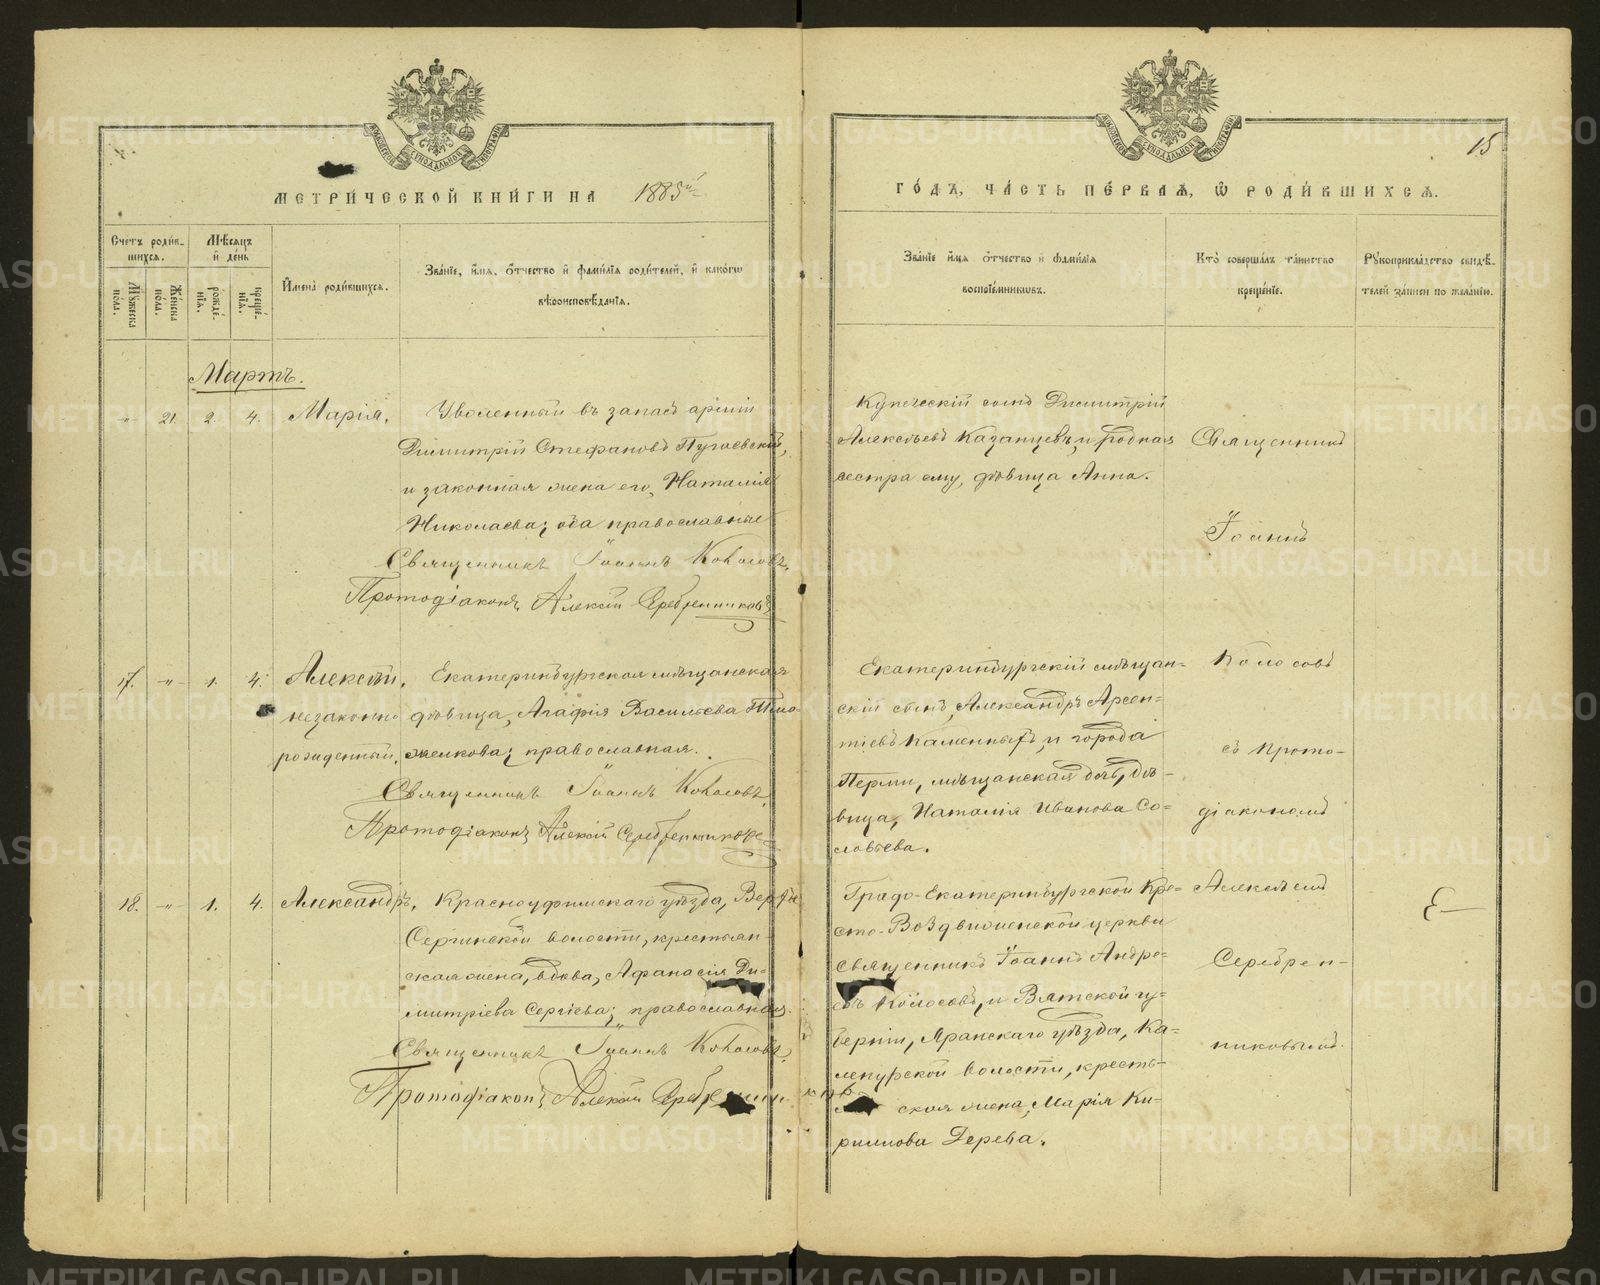 МЕТРИ́ЧЕСКОЙ КНИ́ГИ НА 1885й
Счетъ роди́в-
шихся.
Мѣсяцъ
и҆ день
Мꙋжеска
пола.
Женска
пола.
рожде́-
нїя.
креще́-
нїя.
И҆мена̀ роди́вшихся.
Зва́нїе, и҆́мя, ѻ҆́тчество и҆ фами́лїѧ роди́телей, и҆ како́гѡ
вѣроисповѣ́данїѧ.
Мартъ.
" 21. 2. 4. Марія,
Уволенный въ запасъ арміи
Димитрій Стефановъ Пугаевскій,
и законная жена его, Наталія
Николаева; оба православные
Священникъ Іоаннъ Колосовъ.
Протодіаконъ Алексій Серебренниковъ
17. " 1. 4. Алексѣй,
незаконно
рожденный.
Екатеринбургская мѣщанская
дѣвица, Агафія Васильева
православная.
Священникъ Іоаннъ Колосовъ.
Протодіаконъ Алексій Серебренниковъ
18. " 1. 4. Александръ,
Красноуфимскаго уѣзда, Верхъ
Сергинской волости, крестьян-
ская жена, вдова, Афанасія Ди-
митріева Сергіева; православная.
Священникъ Іоаннъ Колосовъ.
Протодіаконъ Алексій Серебренниковъ.
15
ГО́ДЪ, ЧА́СТЬ ПЕ́РВАѦ, Ѡ҆ РОДИ́ВШИХСѦ.
Зва́нїе и҆́мя ѻ҆́тчество и҆ фами́лїѧ
воспрїе́мникѡвъ.
Кто̀ соверша́лъ та́инство
креще́нїе.
Рꙋкоприкла́дство свидѣ́-
телей за́писи по жела́нїю.
Купеческій сынъ Димитрій
Алексѣевъ Казанцевъ, и родная
сестра ему, дѣвица Анна.
Екатеринбургскій мѣщан-
скій сынъ, Александръ Арсен-
тіевъ Каменныхъ, и города
Перми, мѣщанская дочь, дѣ-
вица, Наталія Иванова Со-
ловьева.
Градо-Екатеринбургской Кре-
сто-Воздвиженской церкви
священникъ Іоаннъ Андре-
евъ Колосовъ, и Вятской гу-
берніи, Яранскаго уѣзда, Ка-
крестья-
ская жена, Марія Ки-
риллова Дерева.
Священникъ
Іоаннъ
Колосовъ
съ прото-
діакономъ
Алексѣемъ
Серебрен-
никовымъ.